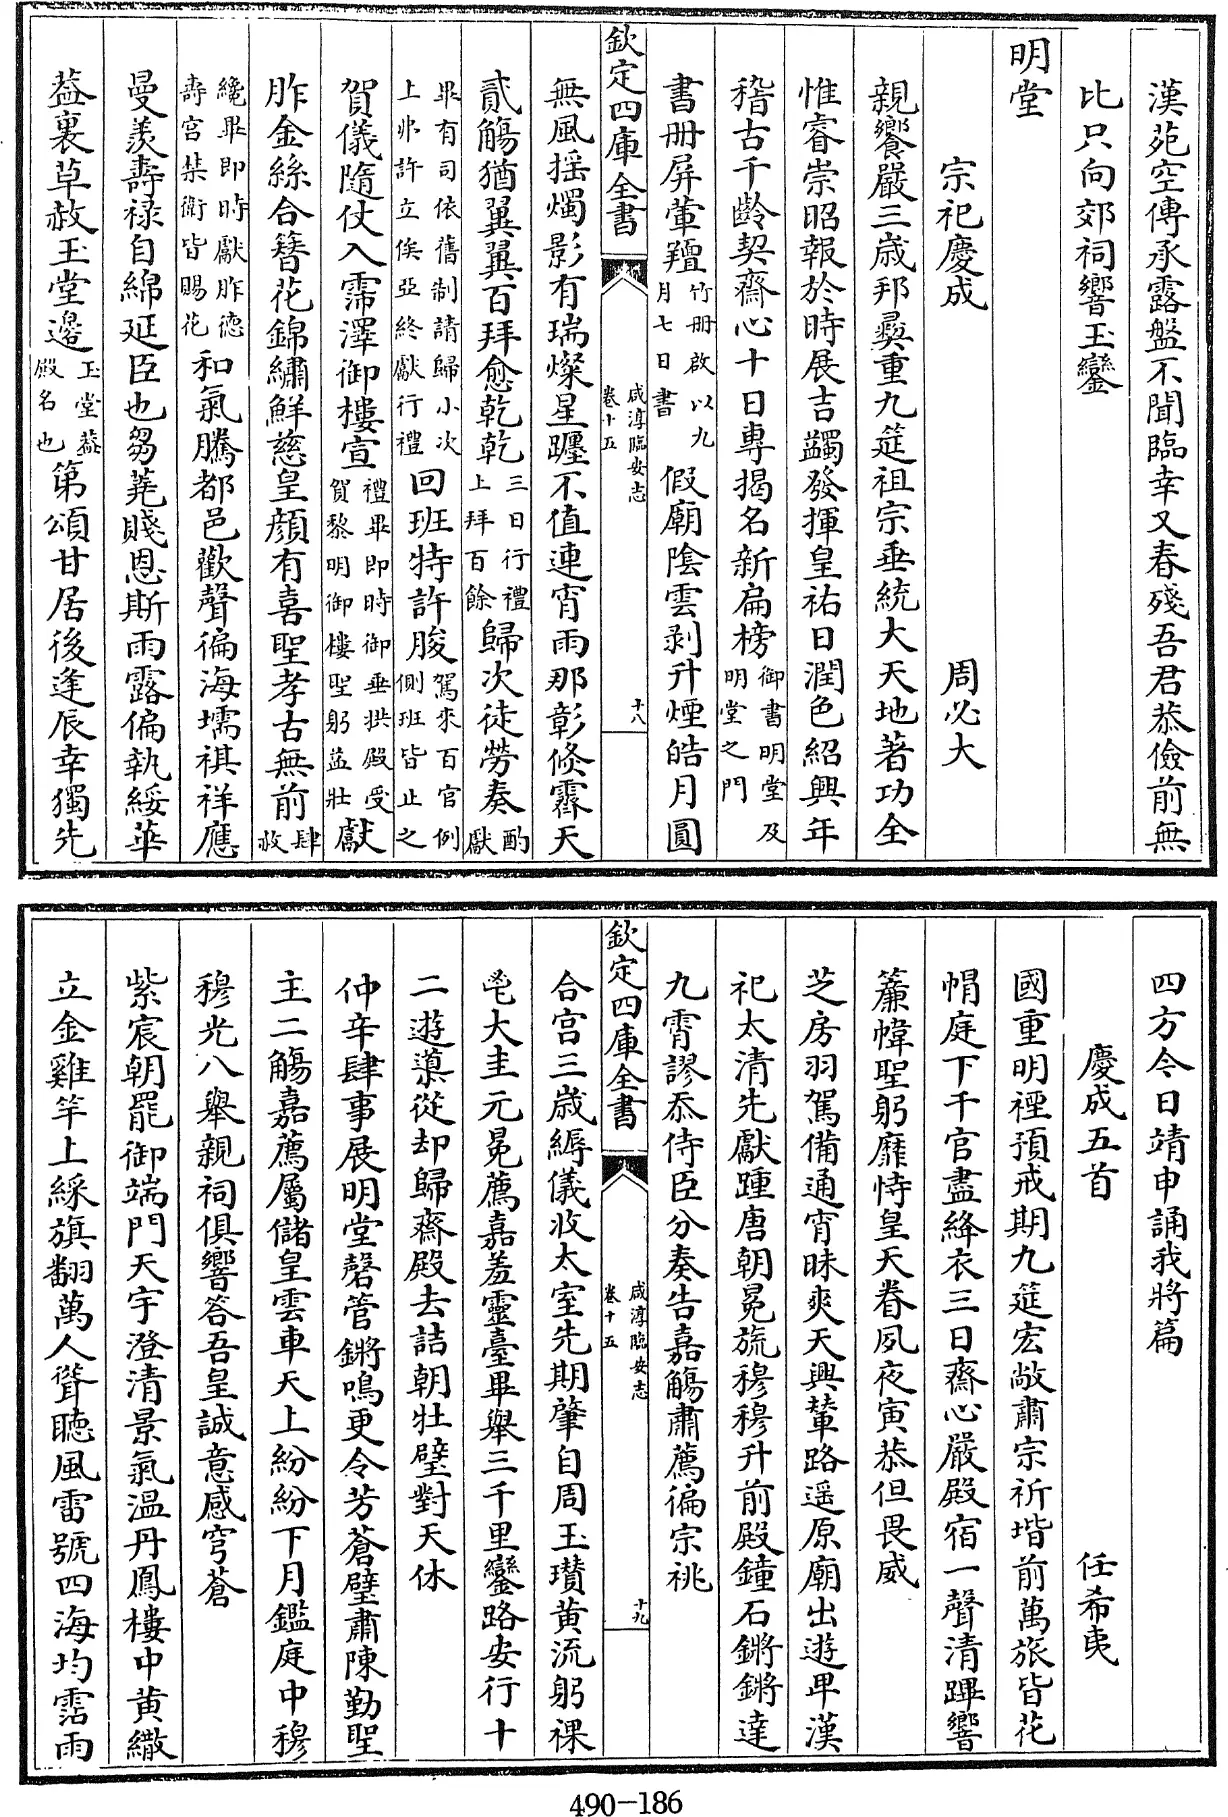 漢苑空傳承露盤不聞臨幸又春殘吾君恭儉前無
比只向郊祠響玉鑾
明堂
宗祀慶成　周必大
親饗嚴三歲邦彞重九筵祖宗垂統大天地著功全
惟睿崇昭報於時展吉蠲發揮皇祐日潤色紹興年
稽古千齡契齋心十日專揭名新扁榜御書明堂及明堂之門
書冊屏葷羶竹冊啟以九月七日書假廟陰雲剥升煙皓月圓
欽定四庫全書　咸淳臨安志卷十五　十八
無風揺燭影有瑞燦星躔不值連宵雨那彰倐霽天
貳觴猶翼翼百拜愈乾乾三日行禮上拜百餘歸次徒勞奏酌獻
畢有司依舊制請歸小次上弗許立俟亞終獻行禮回班特許朘駕來百官例側班皆止之
賀儀隨仗入霈澤御樓宣禮畢即時御垂拱殿受賀黎明御樓聖躬益壯獻
胙金絲合簪花錦繡鮮慈皇顔有喜聖孝古無前肆赦
纔畢即時獻胙德壽宫禁衛皆賜花和氣騰都邑歡聲徧海壖祺祥應
曼羨壽祿自綿延臣也芻蕘賤恩斯雨露偏執綏華
葢裏草赦玉堂邊玉堂葢殿名也第頌甘居後逢辰幸獨先
四方今日靖申誦我將篇
慶成五首　任希夷
國重明禋預戒期九筵宏敞肅宗祈堦前萬旅皆花
帽庭下千官盡絳衣三日齋心嚴殿宿一聲清蹕響
簾幃聖躬靡恃皇天眷夙夜寅恭但畏威
芝房羽駕備通宵昧爽天興輦路遥原廟出遊卑漢
祀太清先獻踵唐朝冕旒穆穆升前殿鐘石鏘鏘達
九霄謬忝侍臣分奏告嘉觴肅薦徧宗祧
欽定四庫全書　咸淳臨安志卷十五　十九
合宫三歲縟儀收太室先期肇自周玉瓚黄流躬祼
鬯大圭元冕薦嘉羞靈臺畢舉三千里鑾路安行十
二遊導從却歸齋殿去詰朝牡璧對天休
仲辛肆事展明堂磬管鏘鳴更令芳蒼璧肅陳勤聖
主二觴嘉薦屬儲皇雲車天上紛紛下月鑑庭中穆
穆光八舉親祠俱響答吾皇誠意感穹蒼
紫宸朝罷御端門天宇澄清景氣温丹鳳樓中黄繖
立金雞竿上綵旗翻萬人聳聽風雷號四海均霑雨
490-186